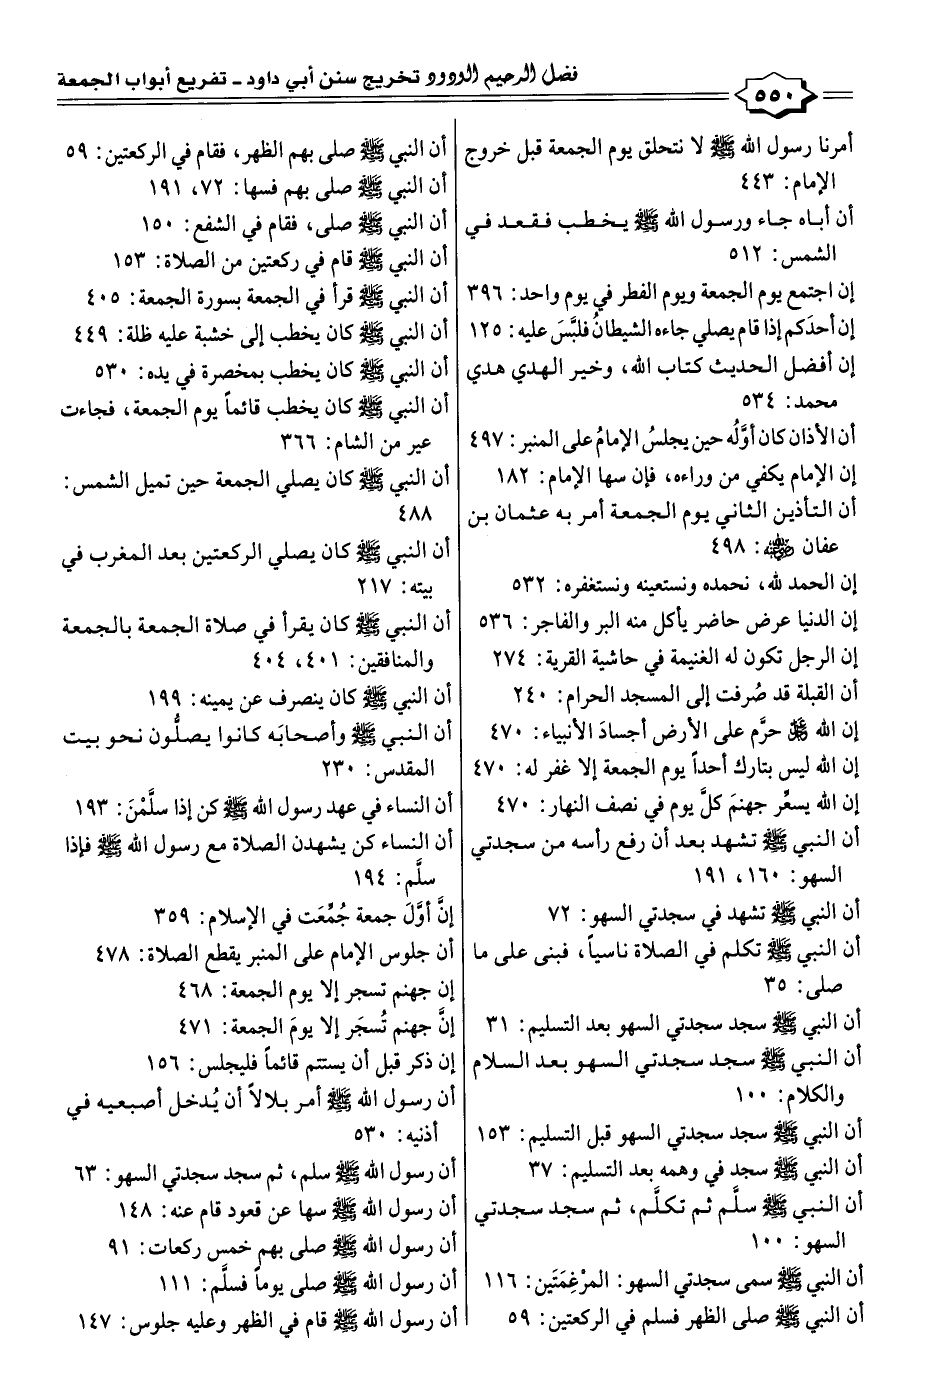 ٥٥٠
فضل الرحيم الودود تخريج سنن أبي داود - تفريع أبواب الجمعة
أمرنا رسول الله ﷺ لا نتحلق يوم الجمعة قبل خروج
الإمام: ٤٤٣
أن أباه جاء ورسول الله ﷺ يخطب فقعد في
الشمس: ٥١٢
إن اجتمع يوم الجمعة ويوم الفطر في يوم واحد: ٣٩٦
إن أحدَكم إذا قام يصلي جاءه الشيطانُ فلبَّسَ عليه: ١٢٥
إن أفضل الحديث كتاب الله، وخير الهدي هدي
محمد: ٥٣٤
أن الأذان كان أوَّلُه حين يجلسُ الإمامُ على المنبر: ٤٩٧
إن الإمام يكفي من وراءه، فإن سها الإمام: ١٨٢
أن التأذين الثاني يوم الجمعة أمر به عثمان بن
عفان ﵁: ٤٩٨
إن الحمد لله، نحمده ونستعينه ونستغفره: ٥٣٢
إن الدنيا عرض حاضر يأكل منه البر والفاجر: ٥٣٦
إن الرجل تكون له الغنيمة في حاشية القرية: ٢٧٤
أن القبلة قد صُرفت إلى المسجد الحرام: ٢٤٠
إن الله ﷿ حرَّم على الأرض أجسادَ الأنبياء: ٤٧٠
إن الله ليس بتارك أحداً يوم الجمعة إلا غفر له: ٤٧٠
إن الله يسعِّر جهنمَ كلَّ يوم في نصف النهار: ٤٧٠
أن النبي ﷺ تشهد بعد أن رفع رأسه من سجدتي
السهو: ١٦٠، ١٩١
أن النبي ﷺ تشهد في سجدتي السهو: ٧٢
أن النبي ﷺ تكلم في الصلاة ناسياً، فبنى على ما
صلى: ٣٥
أن النبي ﷺ سجد سجدتي السهو بعد التسليم: ٣١
أن النبي ﷺ سجد سجدتي السهو بعد السلام
والكلام: ١٠٠
أن النبي ﷺ سجد سجدتي السهو قبل التسليم: ١٥٣
أن النبي ﷺ سجد في وهمه بعد التسليم: ٣٧
أن النبي ﷺ سلَّم ثم تكلَّم، ثم سجد سجدتي
السهو: ١٠٠
أن النبي ﷺ سمى سجدتي السهو: المرْغِمَتَين: ١١٦
أن النبي ﷺ صلى الظهر فسلم في الركعتين: ٥٩
أن النبي ﷺ صلى بهم الظهر، فقام في الركعتين: ٥٩
أن النبي ﷺ صلى بهم فسها: ٧٢، ١٩١
أن النبي ﷺ صلى، فقام في الشفع: ١٥٠
أن النبي ﷺ قام في ركعتين من الصلاة: ١٥٣
أن النبي ﷺ قرأ في الجمعة بسورة الجمعة: ٤٠٥
أن النبي ﷺ كان يخطب إلى خشبة عليه ظلة: ٤٤٩
أن النبي ﷺ كان يخطب بمخصرة في يده: ٥٣٠
أن النبي ﷺ كان يخطب قائماً يوم الجمعة، فجاءت
عير من الشام: ٣٦٦
أن النبي ﷺ كان يصلي الجمعة حين تميل الشمس:
٤٨٨
أن النبي ﷺ كان يصلي الركعتين بعد المغرب في
بيته: ٢١٧
أن النبي ﷺ كان يقرأ في صلاة الجمعة بالجمعة
والمنافقين: ٤٠١، ٤٠٤
أن النبي ﷺ كان ينصرف عن يمينه: ١٩٩
أن النبي ﷺ وأصحابَه كانوا يصلُّون نحو بيت
المقدس: ٢٣٠
أن النساء في عهد رسول الله ﷺ كن إذا سلَّمْنَ: ١٩٣
أن النساء كن يشهدن الصلاة مع رسول الله ﷺ فإذا
سلَّم: ١٩٤
إنَّ أوَّلَ جمعة جُمِّعَت في الإسلام: ٣٥٩
أن جلوس الإمام على المنبر يقطع الصلاة: ٤٧٨
إن جهنم تسجر إلا يوم الجمعة: ٤٦٨
إنَّ جهنم تُسجَر إلا يومَ الجمعة: ٤٧١
إن ذكر قبل أن يستتم قائماً فليجلس: ١٥٦
أن رسول الله ﷺ أمر بلالاً أن يُدخل أصبعيه في
أذنيه: ٥٣٠
أن رسول الله ﷺ سلم، ثم سجد سجدتي السهو: ٦٣
أن رسول الله ﷺ سها عن قعود قام عنه: ١٤٨
أن رسول الله ﷺ صلى بهم خمس ركعات: ٩١
أن رسول الله ﷺ صلى يوماً فسلَّم: ١١١
أن رسول الله ﷺ قام في الظهر وعليه جلوس: ١٤٧